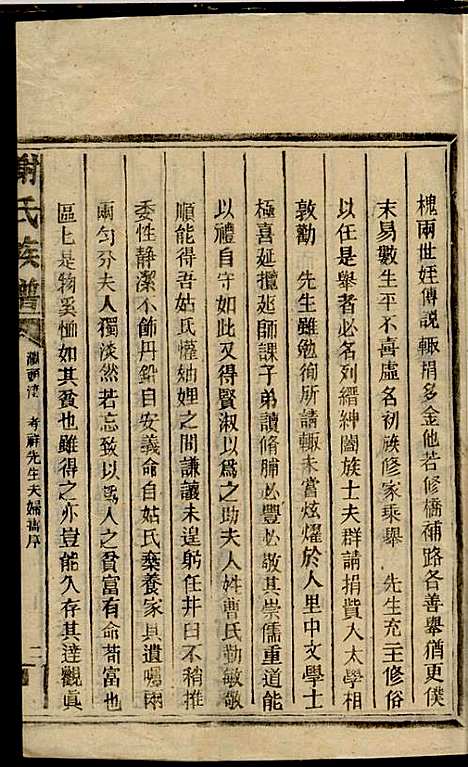 槐兩世姪傳說輙捐多金他若修橋補路各善舉猶更僕
末易數生平不喜虛名初族修家乘舉 先生充主修俗
以任是舉者必名列縉紳闔族士夫群請捐貲入太學相
敦勸 先生雖勉徇所請輙未嘗炫燿於人里中文學士
極喜延攬延師課子弟讀脩脯必豐必敬其崇儒重道能
以禮自守如此又得賢淑以為之助夫人姓曹氏勤敏敬
順能得吾姑氏懽妯娌之間謙讓未遑躬任井臼不稍推
委性静潔不飾丹鉛自安義命自姑氏棄養家具遺囑兩
兩勻分夫人獨淡然若忘致以爲人之貧富有命苟富也
區匕是物奚恤如其貧也雖得之亦豈能久存其達觀眞
謝氏族譜
考祥先生夫婦壽序
二